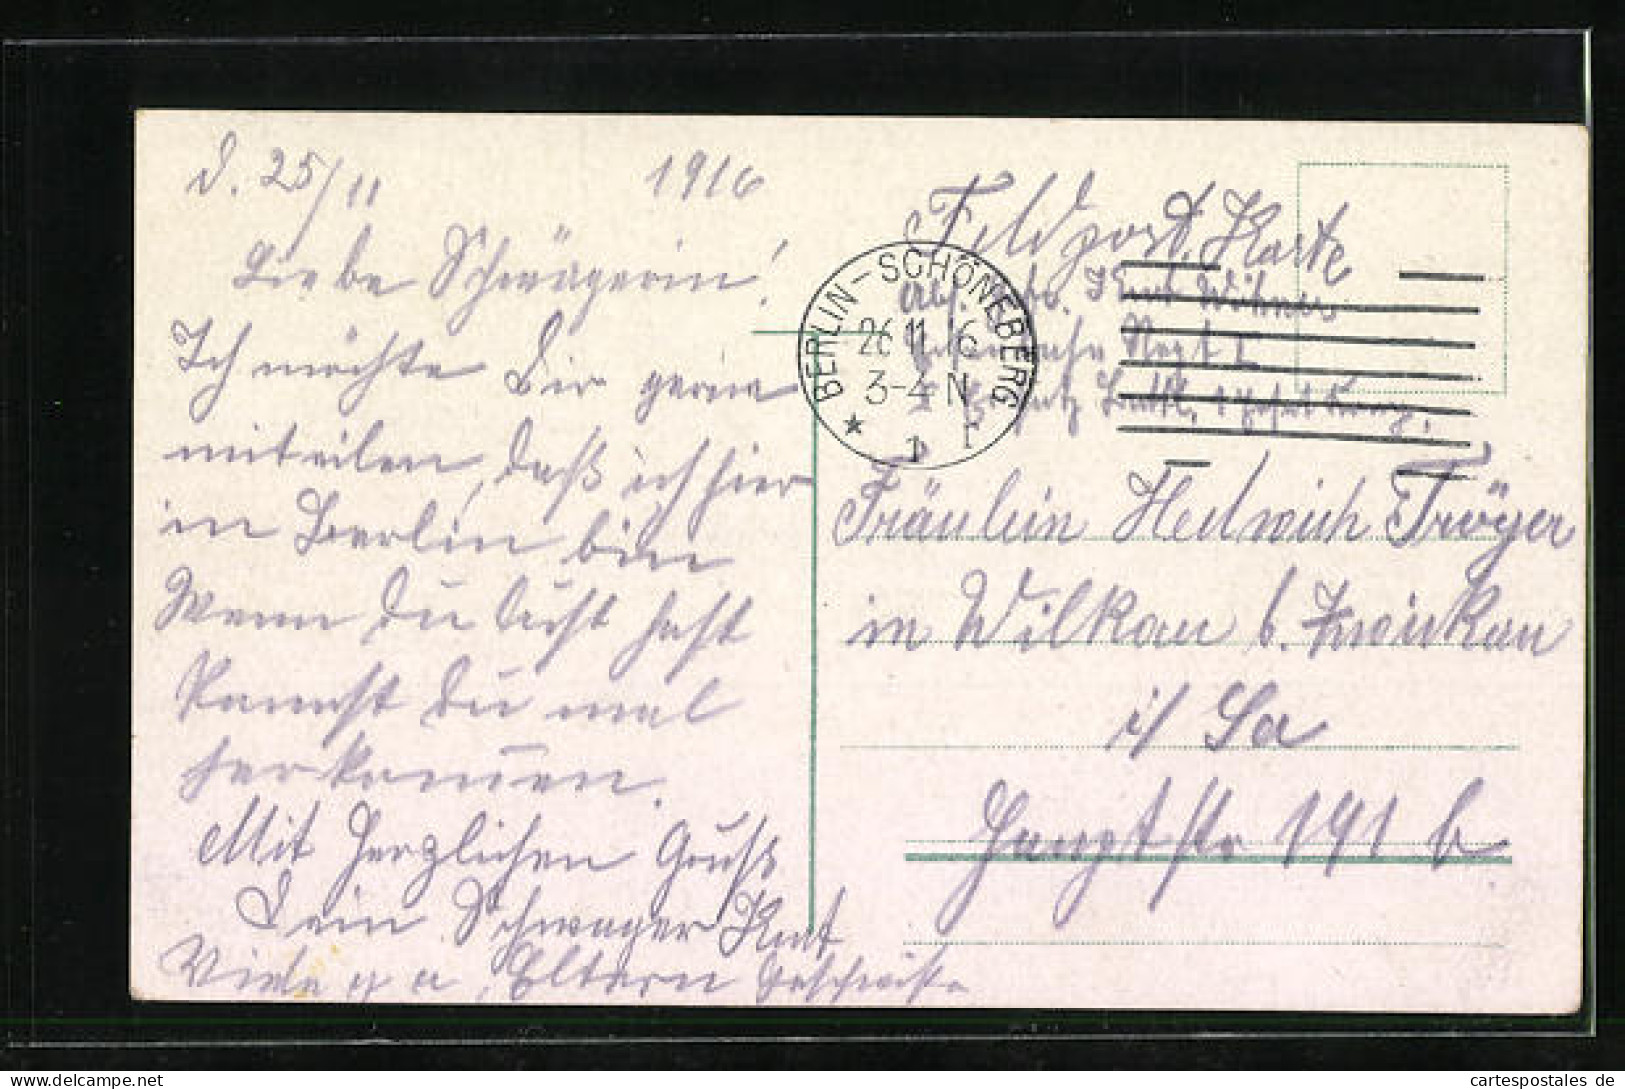 d. 25/11 1916
Liebe Schwägerin!
Ich möchte Dir gerne
mitteilen, daß ich hier
in Berlin bin
Wenn Du Lust hast
kannst Du mal
herkommen.
Mit herzlichen Gruß
Dein Schwager Kurt
Viele g a Eltern Geschwist.
Feldpost. Karte
Abs. Kurt
Regt I
BERLIN-SCHÖNEBERG
26 11 16
3-4 N
★ 1 r
Fräulein Hedwich Tröger
in Wilkau b. Zwickau
i/ Sa
Hauptstr 191 b
cartespostales de